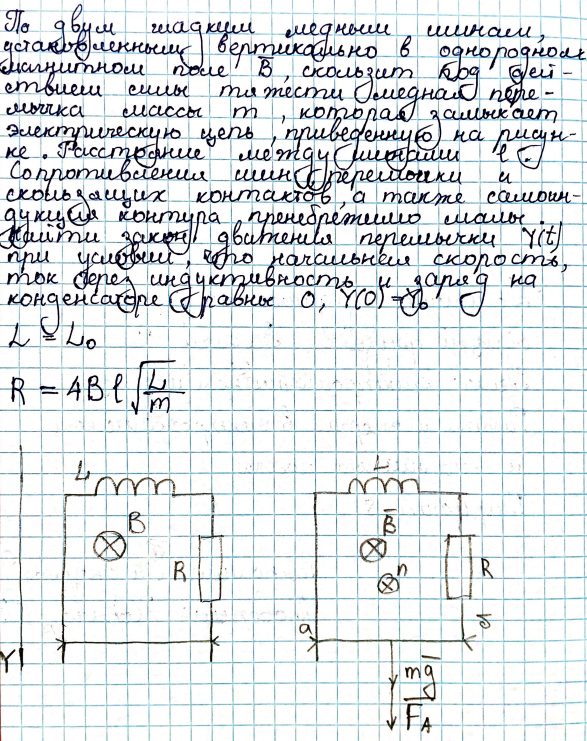 По двум гладким медным шинам,
установленным вертикально в однородном
магнитном поле B̄, скользит под дей-
ствием силы тяжести медная пере-
мычка массы m, которая замыкает
электрическую цепь, приведенную на рисун-
ке. Расстояние между шинами l.
Сопротивления шин, перемычки и
скользящих контактов, а также самоин-
дукция контура пренебрежимо малы.
Найти закон движения перемычки Y(t)
при условии, что начальная скорость,
ток через индуктивность и заряд на
конденсаторе равны 0, Y(0)=Y₀
L = L₀
R = 4Bl√(L/m)
L
B
R
Y
L
B̄
n
R
a
б
mḡ
F̄A